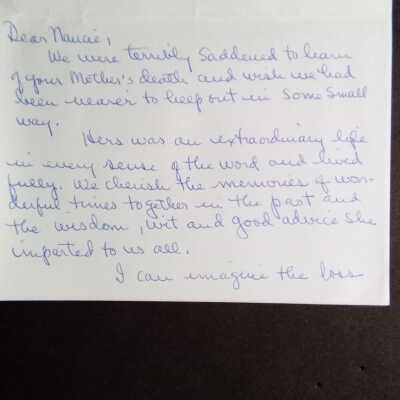 Dear Nancie,
We were terribly saddened to learn
of your Mother's death and wish we had
been nearer to help out in some small
way.
Hers was an extraordinary life
in every sense of the word and lived
fully. We cherish the memories of won-
derful times together in the past and
the wisdom, wit and good advice she
imparted to us all.
I can imagine the loss